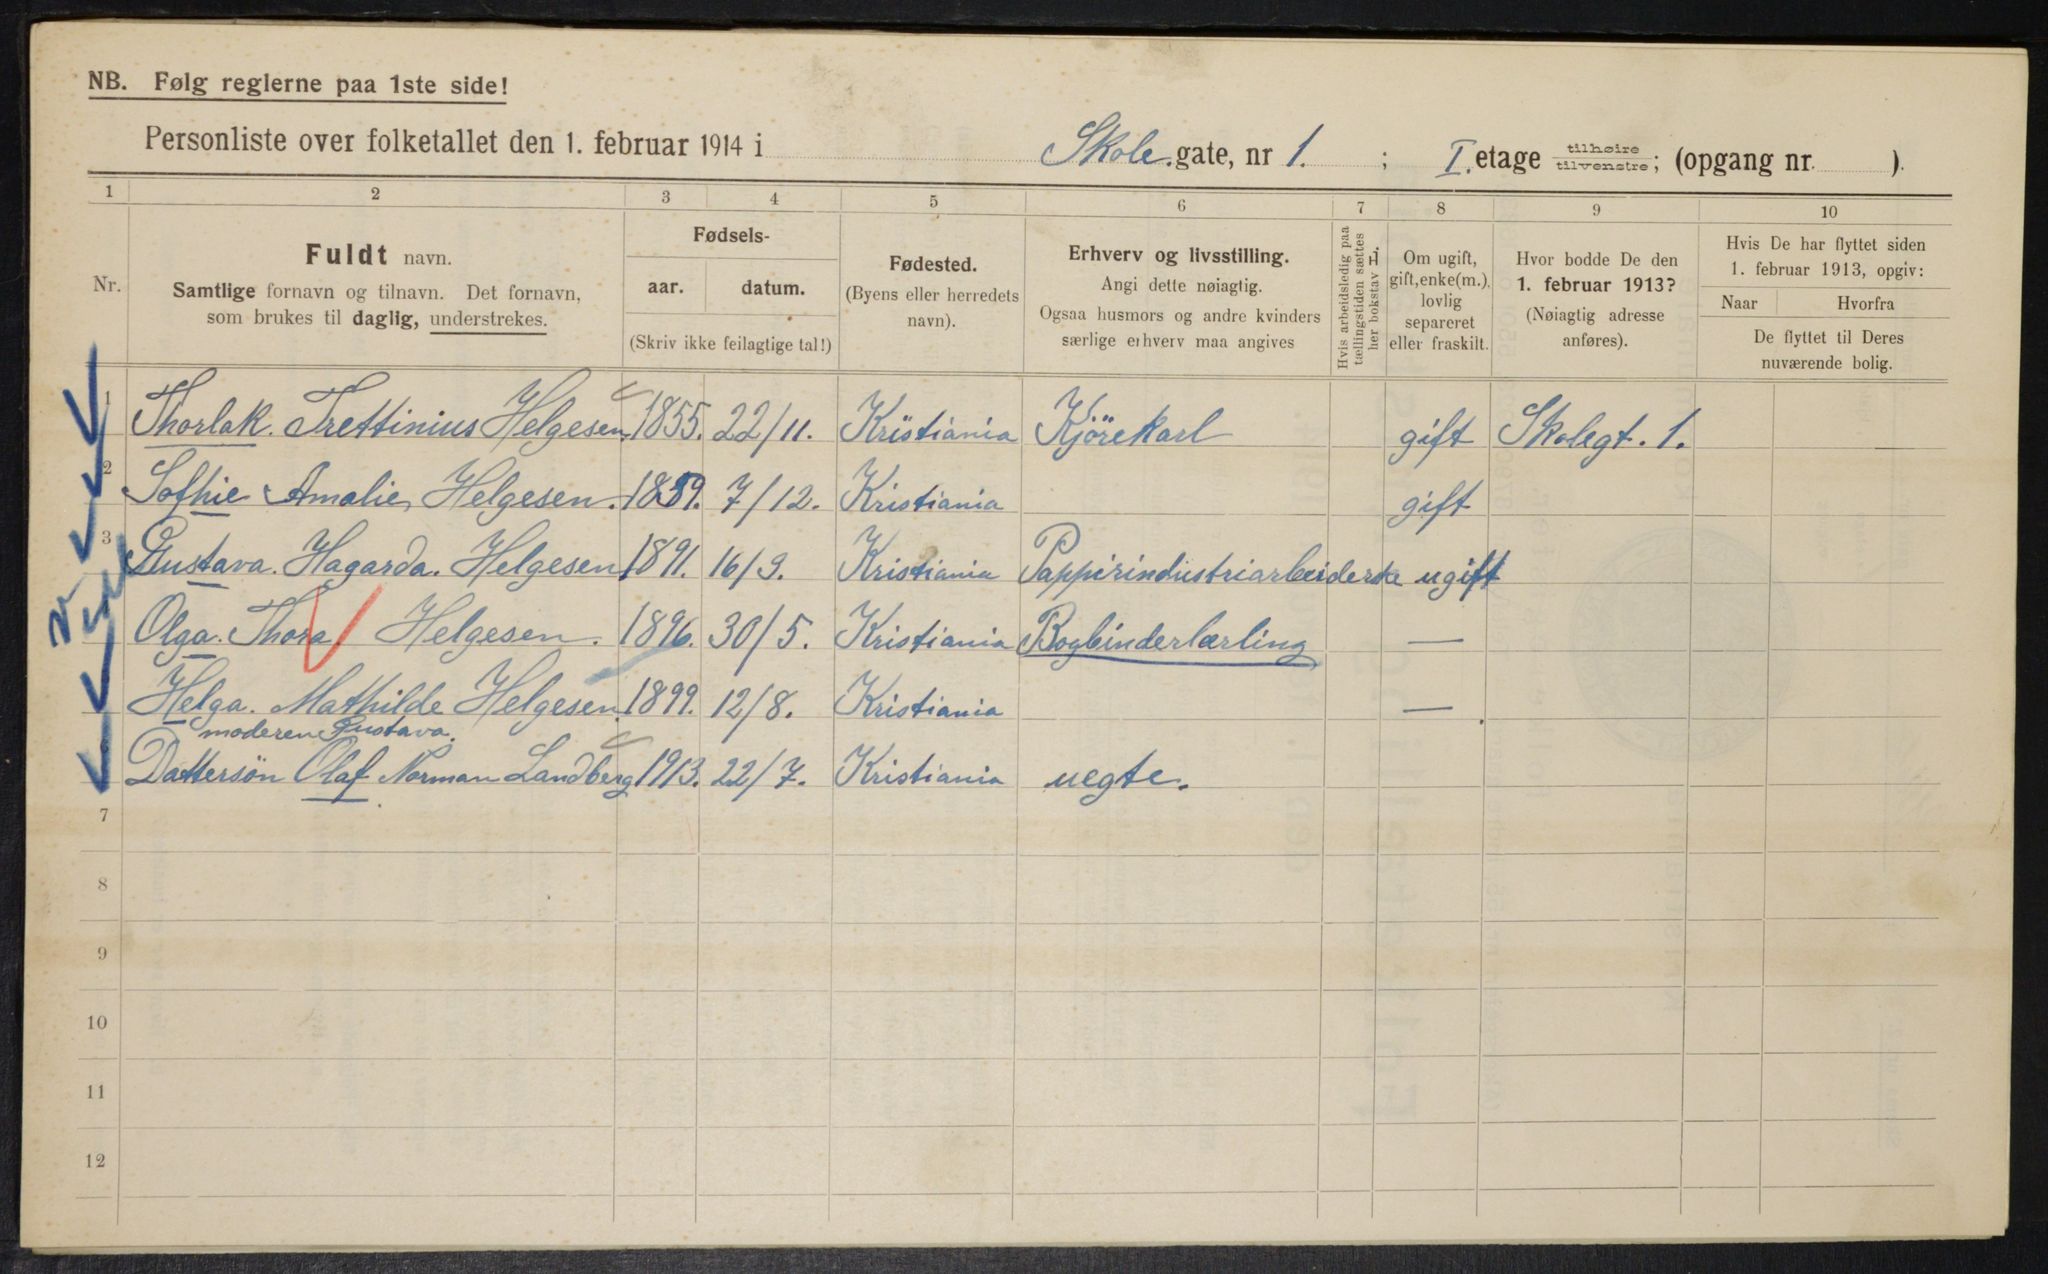 NB. Følg reglerne paa 1ste side!
Personliste over folketallet den 1. februar 1914 i Skole gate, nr 1. ; I. etage tilhøire tilvenstre; (opgang nr. ).
1 2 3 4 5 6 7 8 9 10
Nr.
Fuldt navn.
Samtlige fornavn og tilnavn. Det fornavn,
som brukes til daglig, understrekes.
Fødsels-
aar. datum.
(Skriv ikke feilagtige tal!)
Fødested.
(Byens eller herredets
navn).
Erhverv og livsstilling.
Angi dette nøiagtig.
Ogsaa husmors og andre kvinders
særlige erhverv maa angives
Hvis arbeidsledig paa
tællingstiden sættes
her bokstav L.
Om ugift,
gift, enke(m.),
lovlig
separeret
eller fraskilt.
Hvor bodde De den
1. februar 1913?
(Nøiagtig adresse
anføres).
Hvis De har flyttet siden
1. februar 1913, opgiv:
Naar Hvorfra
De flyttet til Deres
nuværende bolig.
1 Thorlak. Trettinius Helgesen 1855. 22/11. Kristiania Kjörekarl gift Skolegt. 1.
2 Sofhie Amalie Helgesen. 1859. 7/12. Kristiania gift
3 Gustava. Hagarda. Helgesen 1891. 16/9. Kristiania Pappirindustriarbeiderske ugift
Olga. Thora Helgesen. 1896. 30/5. Kristiania Bogbinderlærling —
Helga. Mathilde Helgesen. 1899. 12/8. Kristiania —
moderen Gustava.
Dattersön Olaf Norman Landberg 1913. 22/7. Kristiania uegte.
7
8
9
10
11
12